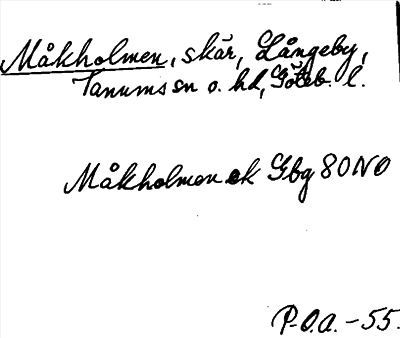 Måkholmen, skär, Långeby,
Tanums sn o. hd, Göteb. l.
Måkholmen ek Gbg 80 NO
P-O.A. -55.